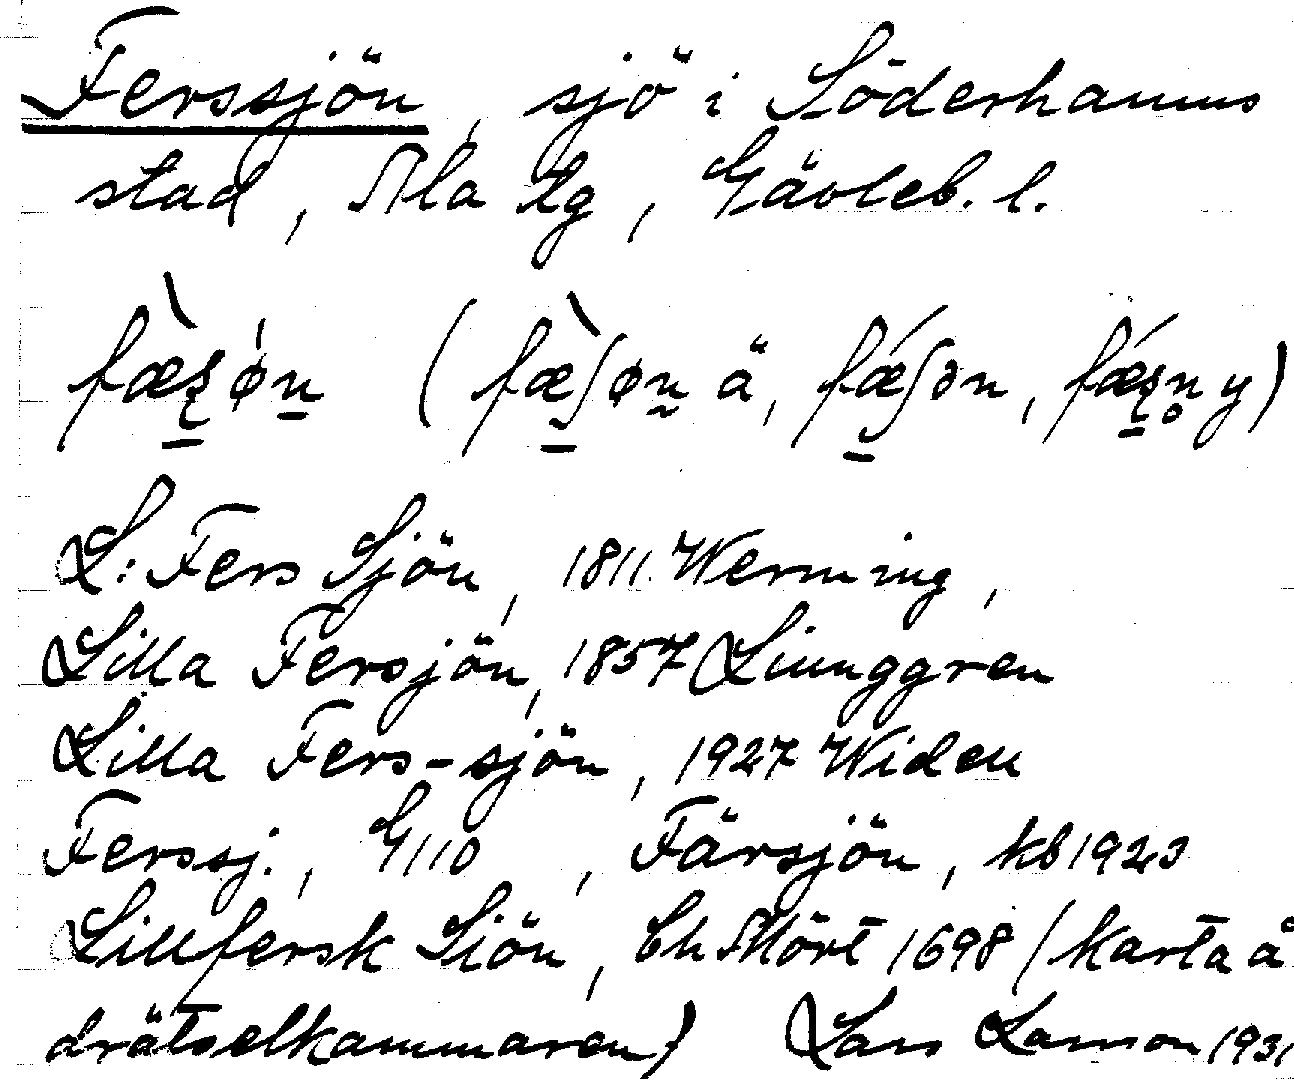 Ferssjön, sjö i Söderhamns
stad, Ala tg, Gävleb. l.
fæ̀ʂø̀n (fæ̀ʃøn ä, fǽʃɔn, fǽʂn̥ y)
L: Fers Sjön, 1811 Werming,
Lilla Fersjön, 1857 Liunggren
Lilla Fers-sjön, 1927 Widen
Ferssj., G110, Färsjön, kb 1923
Lillfersk Siön, Ch Mört 1698 (karta å
drätselkammaren) Lars Larsson 1931